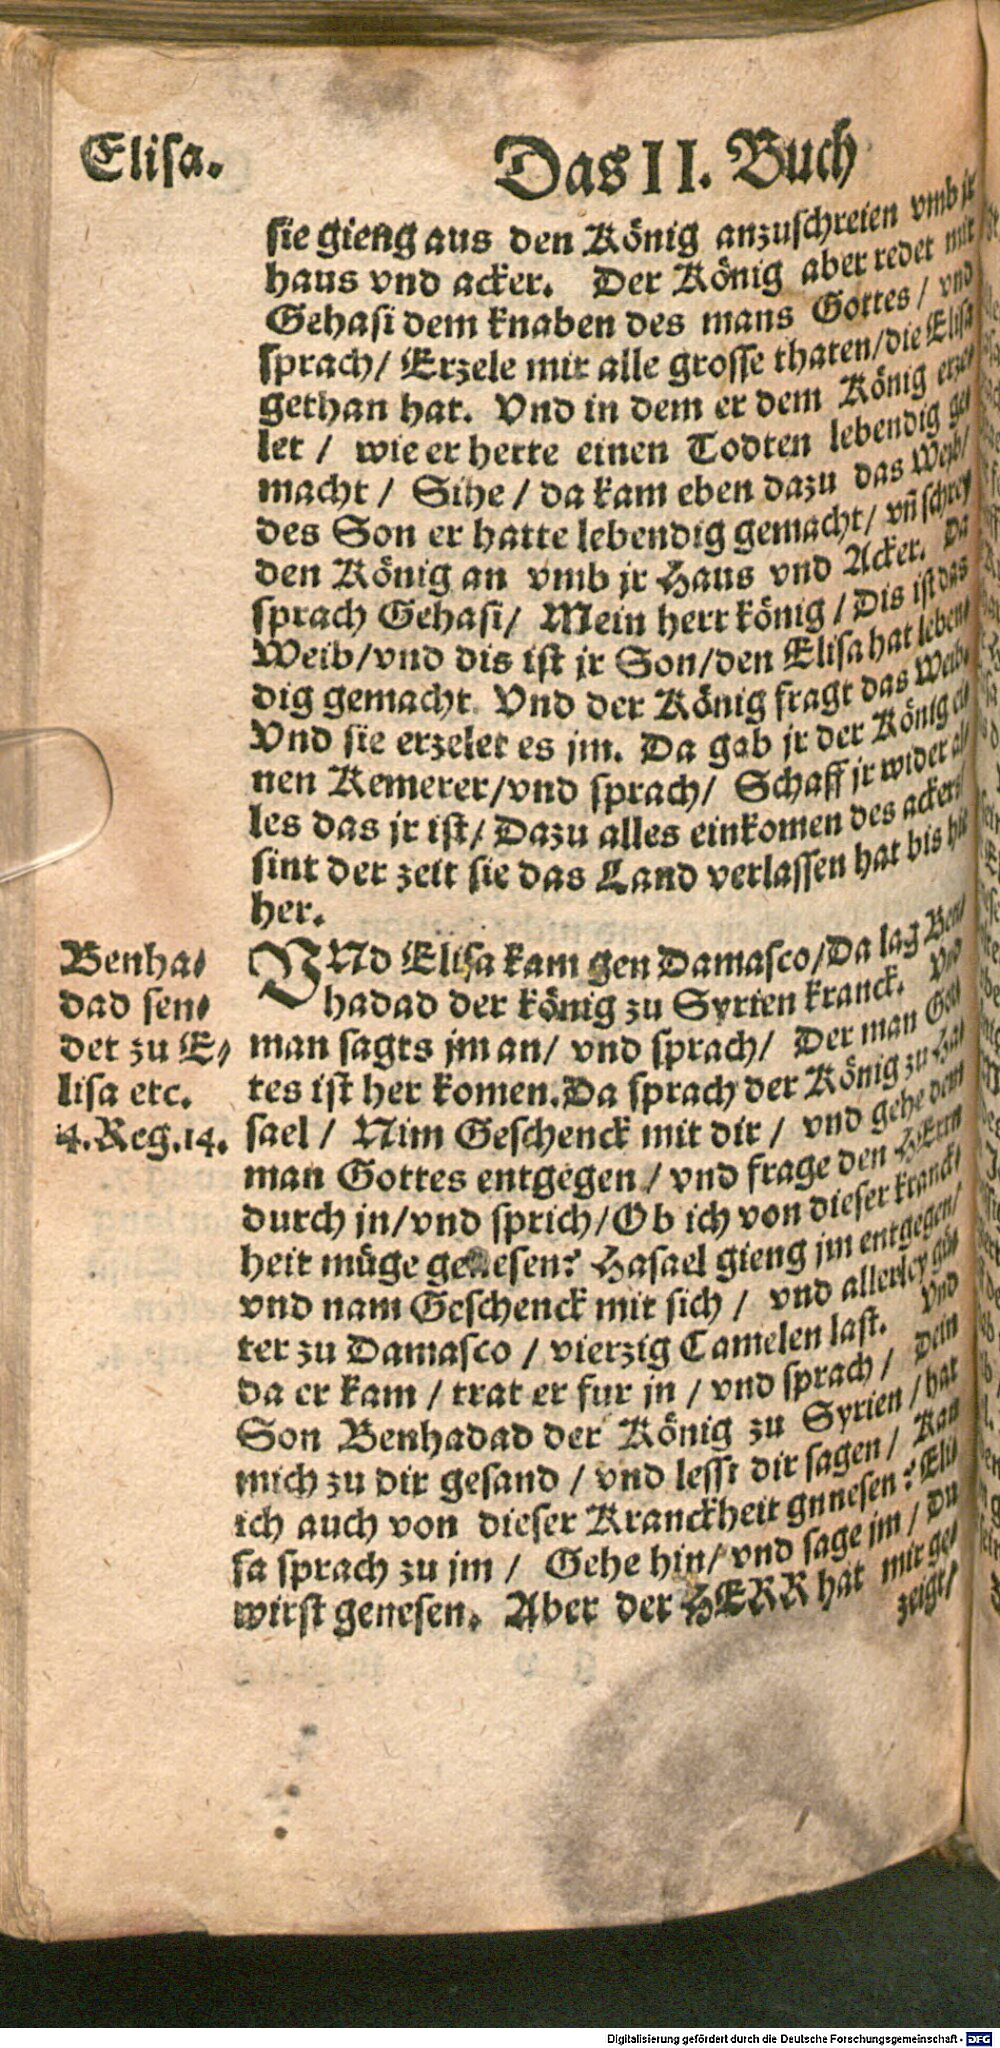 Elisa.
Das II. Buch
sie gieng aus den König anzuschreien vmb jr
haus vnd acker. Der König aber redet mit
Gehasi dem knaben des mans Gottes / vnd
sprach / Erzele mir alle grosse thaten / die Elisa
gethan hat. Vnd in dem er dem König erze⸗
let / wie er hette einen Todten lebendig ge⸗
macht / Sihe / da kam eben dazu das Weib /
des Son er hatte lebendig gemacht / vñ schrey
den König an vmb jr Haus vnd Acker. Da
sprach Gehasi / Mein herr könig / Dis ist das
Weib / vnd dis ist jr Son / den Elisa hat leben⸗
dig gemacht. Vnd der König fragt das Weib.
Vnd sie erzelet es jm. Da gab jr der König ei⸗
nen Kemerer / vnd sprach / Schaff jr wider al⸗
les das jr ist / Dazu alles einkomen des ackers /
sint der zeit sie das Land verlassen hat bis hie
her.
Benha⸗
dad sen⸗
det zu E⸗
lisa etc.
4.Reg.14.
VNd Elisa kam gen Damasco / Da lag Ben⸗
hadad der könig zu Syrien kranck. Vnd
man sagts jm an / vnd sprach / Der man Got
tes ist her komen. Da sprach der König zu Ha⸗
sael / Nim Geschenck mit dir / vnd gehe dem
man Gottes entgegen / vnd frage den HErrn
durch jn / vnd sprich / Ob ich von dieser kranck⸗
heit müge genesen? Hasael gieng jm entgegen /
vnd nam Geschenck mit sich / vnd allerley gü⸗
ter zu Damasco / vierzig Camelen last. Vnd
da er kam / trat er fur jn / vnd sprach / Dein
Son Benhadad der König zu Syrien / hat
mich zu dir gesand / vnd lesst dir sagen / Kan
ich auch von dieser Kranckheit gnnesen? Eli⸗
sa sprach zu jm / Gehe hin / vnd sage jm / Du
wirst genesen. Aber der HERR hat mir ge⸗
zeigt /
Digitalisierung gefördert durch die Deutsche Forschungsgemeinschaft - DFG